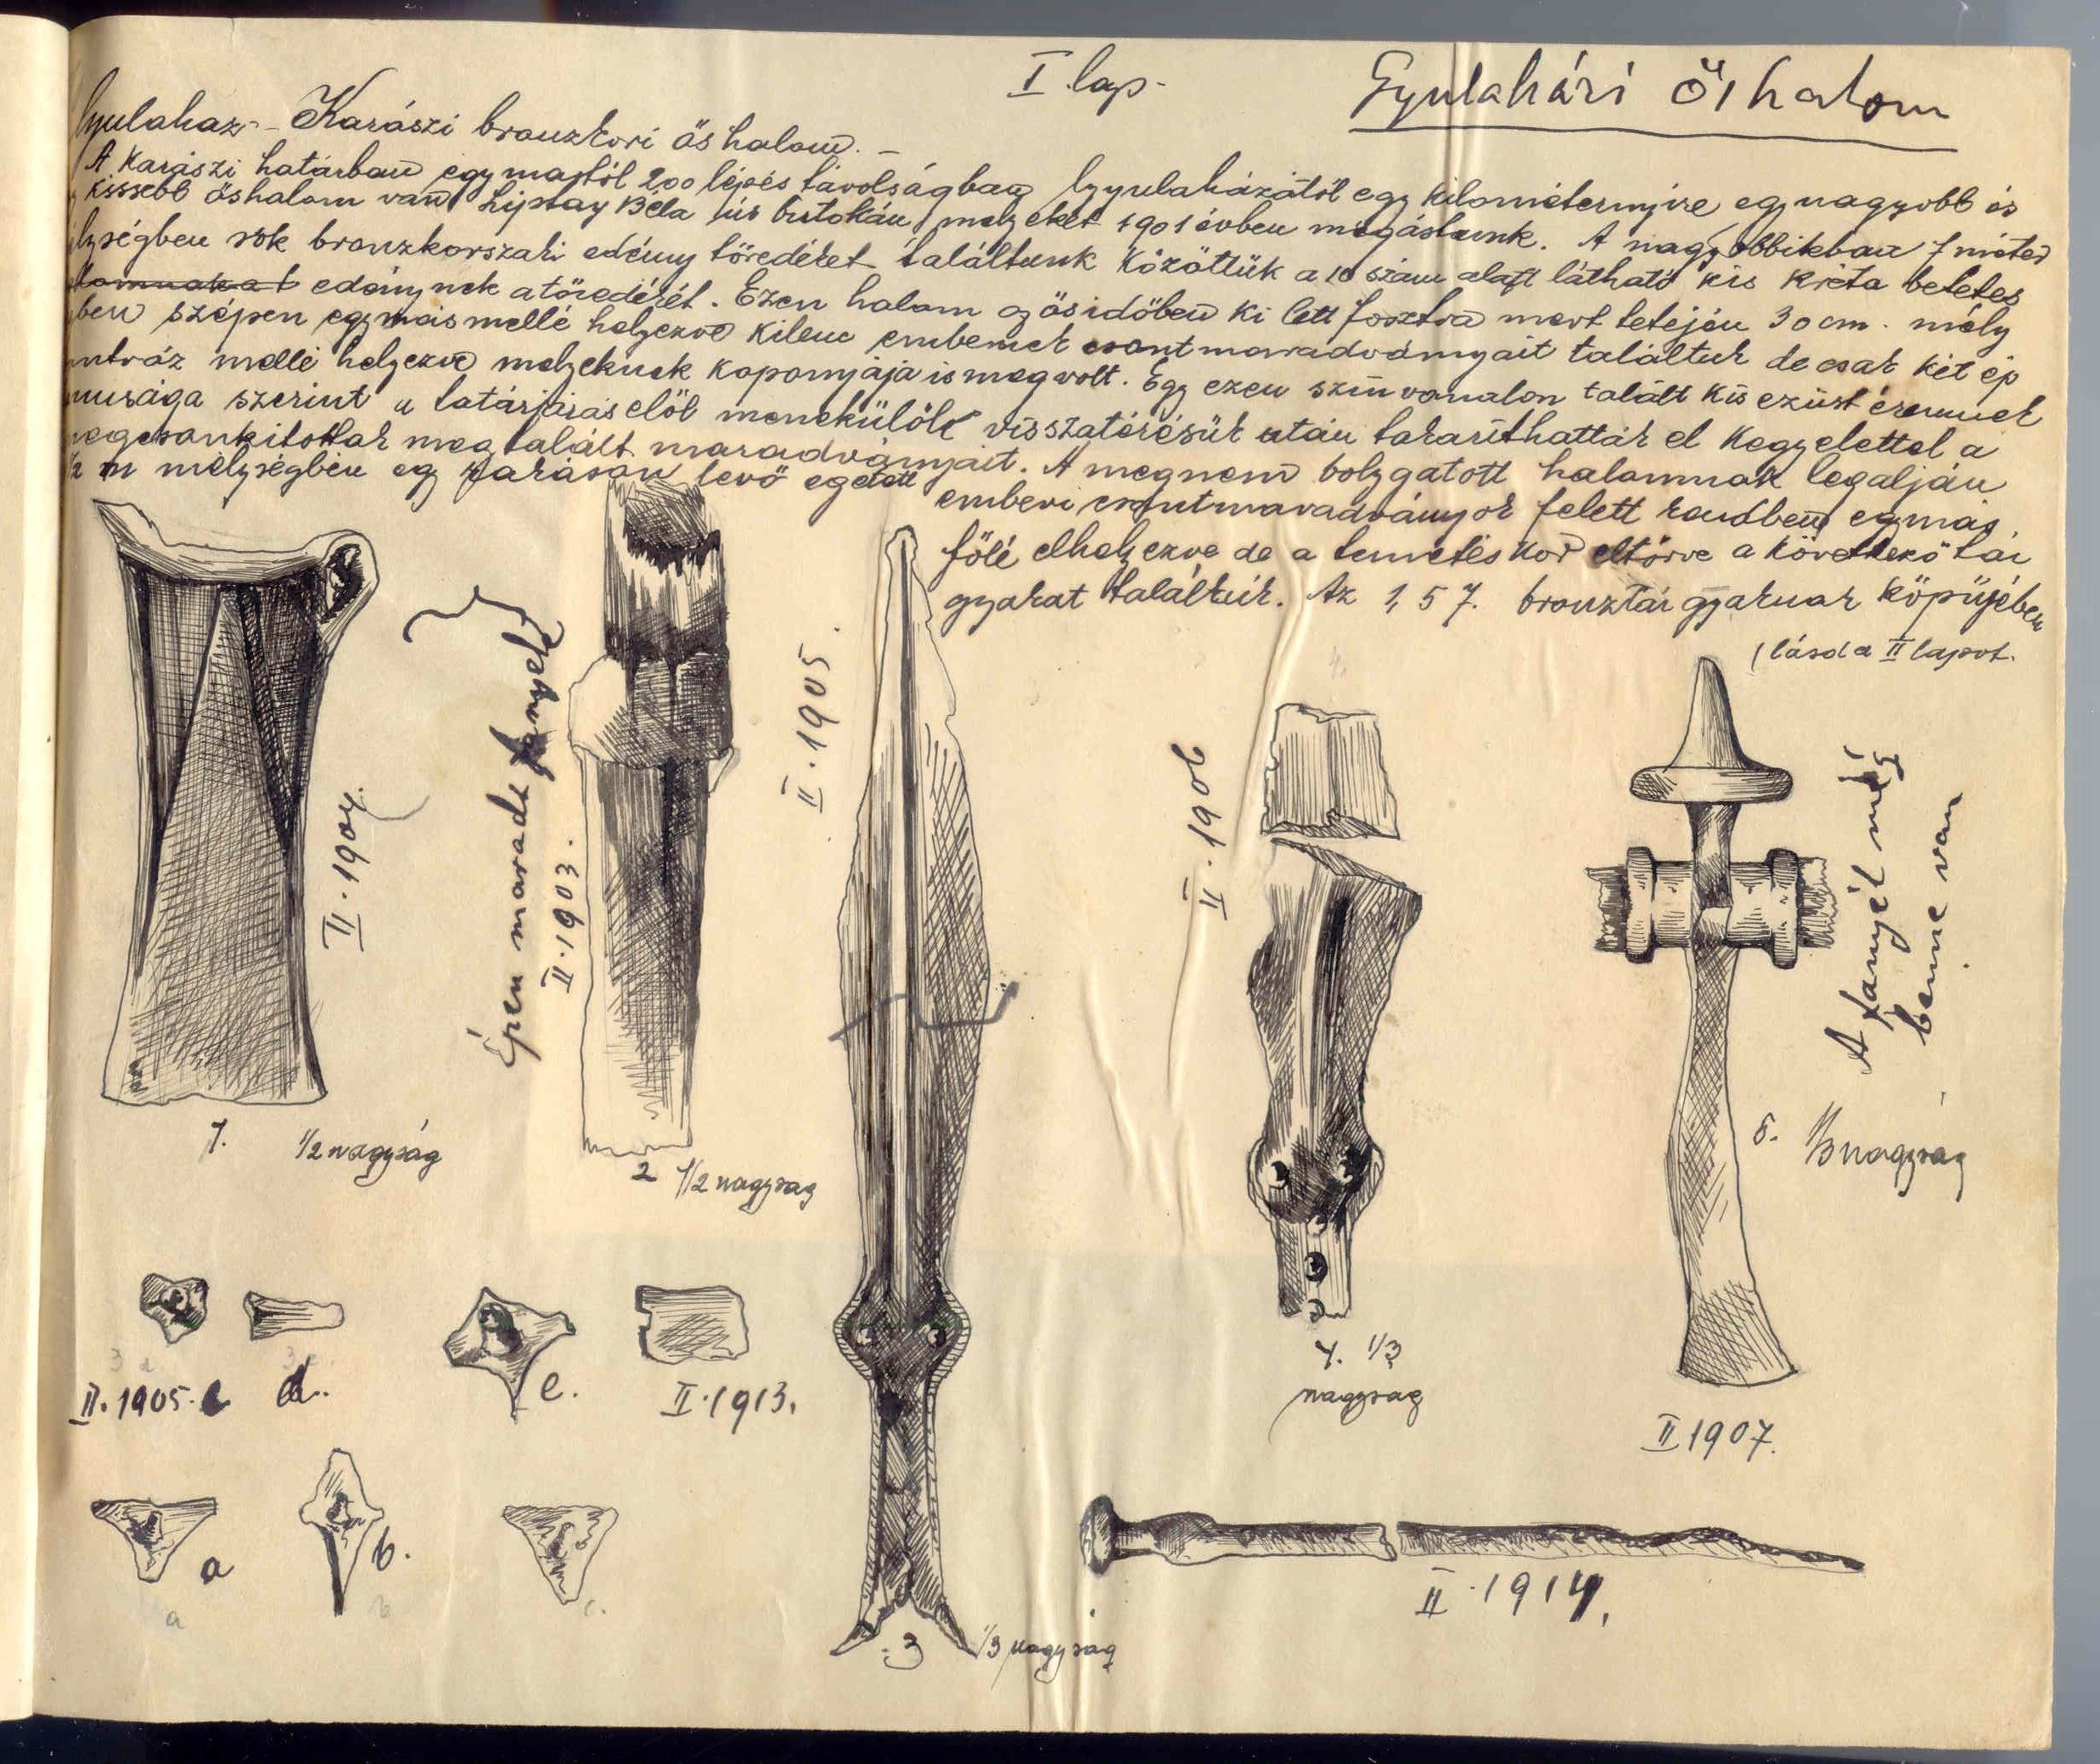 I. lap.
Gyulaházi őshalom
Gyulaház - Karászi bronzkori őshalom. -
A Karászi határban egymástól 200 lépés távolságban Gyulaházától egy kilométernyire egy nagyobb és
kissebb őshalom van Liptay Béla úr birtokán, melyeket 1901 évben megástunk. A nagyobbikban 1 méter
lységben sok bronzkorszaki edény töredéket találtunk közöttük a 10 szám alatt látható kis kréta betetes
edénynek a töredékét. Ezen halom az ősidőben ki lett fosztva mert tetején 30 cm. mély
ben szépen egymás mellé helyezve kilenc embernek csontmaradványait találtuk de csak két ép
ntváz mellé helyezve melyeknek koponyája is megvolt. Egy ezen színvonalon talált kis ezüst éremnek
nusága szerint a tatárjárás elől menekülők visszatérésük után takaríthatták el kegyelettel a
megtalált maradványait. A meg nem bolygatott halomnak legalján
1/2 m mélységben egy rakáson levő égetett
emberi csontmaradványok felett rendben egymás
fölé elhelyezve de a temetéskor eltörve a következő tár
gyakat találtuk. Az 1, 5 7. bronztárgyaknak köpüjében
(lásd a II lapot.
II. 1904.
Épen maradt fanyél
II. 1903.
II. 1905.
II. 1906
A fanyél még
benne van
1. 1/2 nagyság
2 1/2 nagyság
5. 1/3 nagyság
4. 1/3
nagyság
II 1907.
II. 1905.
d.
e.
II. 1913.
a
b.
a
b
c.
3 1/3 nagyság
II. 1914.